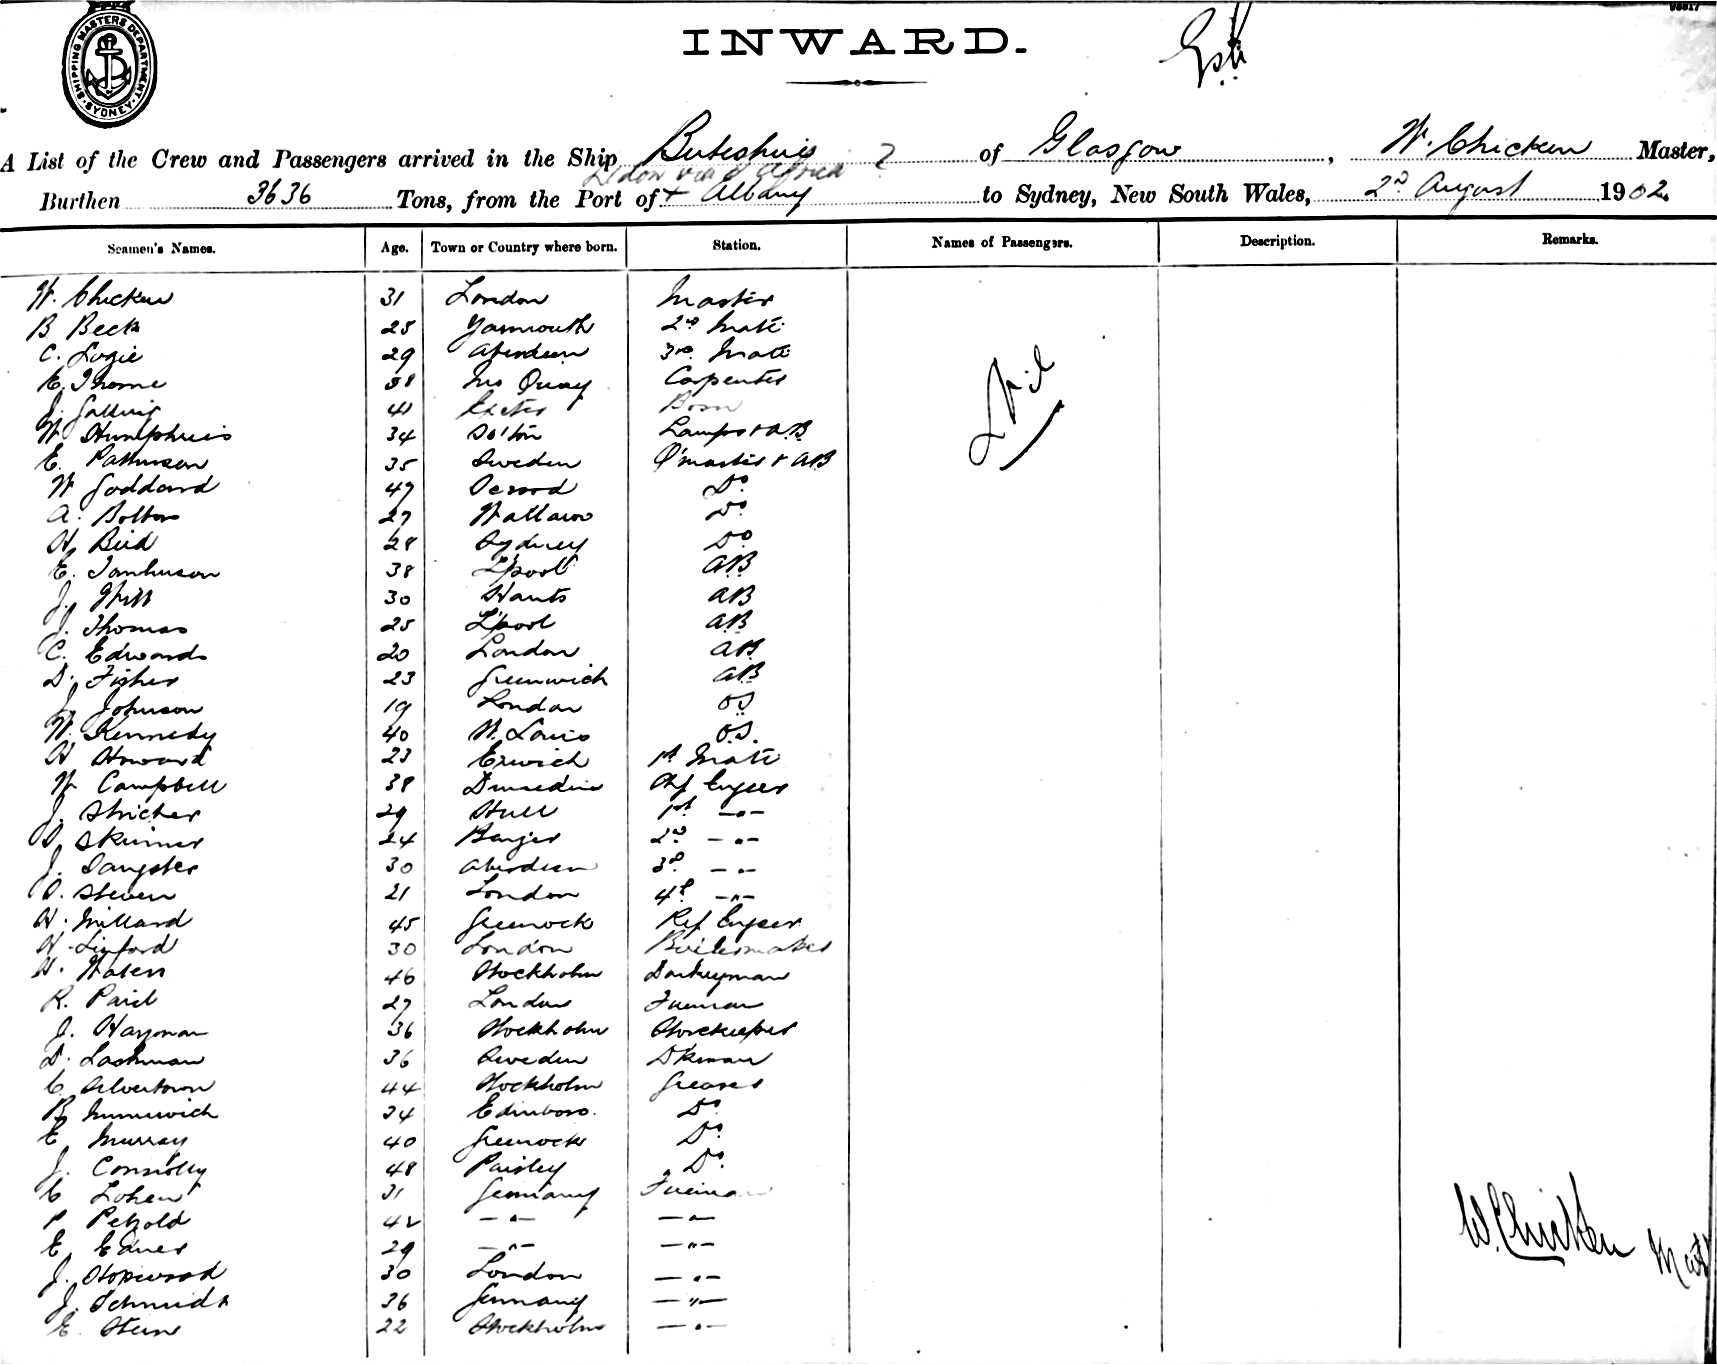 SHIPPING MASTERS DEPARTMENT SYDNEY
INWARD.
A List of the Crew and Passengers arrived in the Ship Buteshire of Glasgow, W. Chicken Master,
London via S Africa ?
Burthen 3636 Tons, from the Port of + Albany to Sydney, New South Wales, 2nd August 1902
Seamen's Names. Age. Town or Country where born. Station. Names of Passengers. Description. Remarks.
W. Chicken 31 London Master
B Beck 25 Yarmouth 2nd Mate
C. Logie 29 Aberdeen 3rd Mate
E. Thorne 38 Quay Carpenter
J. 41 Exeter Bosn
W Humphries 34 So'ton Lamps & AB
E. Patterson 35 Sweden Q'master & AB
W Goddard 47 Do
A. Bolton 27 Do
H Bird 28 Sydney Do
E. Tomlinson 38 L'pool AB
J. Hill 30 Hants AB
J. Thomas 25 L'pool AB
C. Edwards 20 London AB
D. Fisher 23 Greenwich AB
J. Johnson 19 London OS
W. Kennedy 40 St. Louis O.S.
H Howard 23 1st Mate
W Campbell 38 Dunedin Chf Engeer
J. Stricher 29 Hull 1st -"-
D Skinner 24 2nd -"-
J. Sangster 30 Aberdeen 3rd -"-
D. Steven 21 London 4th -"-
H. Millard 45 Greenock Ref Engeer
H. Linford 30 London Boilermaker
46 Stockholm Donkeyman
R. 27 London Fireman
J. Hayman 36 Stockholm Storekeeper
D. Lachman 36 Sweden Dkman
C. Silvertown 44 Stockholm Greaser
34 Edinboro. Do
E. Murray 40 Greenock Do
J. Connolly 48 Paisley Do
C Lohen 31 Germany Fireman
P Petzold 42 -"- -"-
E. Edner 29 -"- -"-
J. Hopwood 30 London -"-
J. Schmidt 36 Germany -"-
E. Stern 22 Stockholm -"-
Nil
W. Chicken Mast